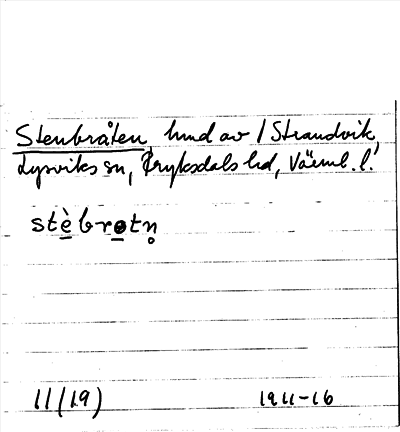 Stenbråten, hmd av 1 Strandvik,
Lysviks sn, Fryksdals hd, Värml. l.
stè̠brɵ̠tn̥
11(19) 1911-16